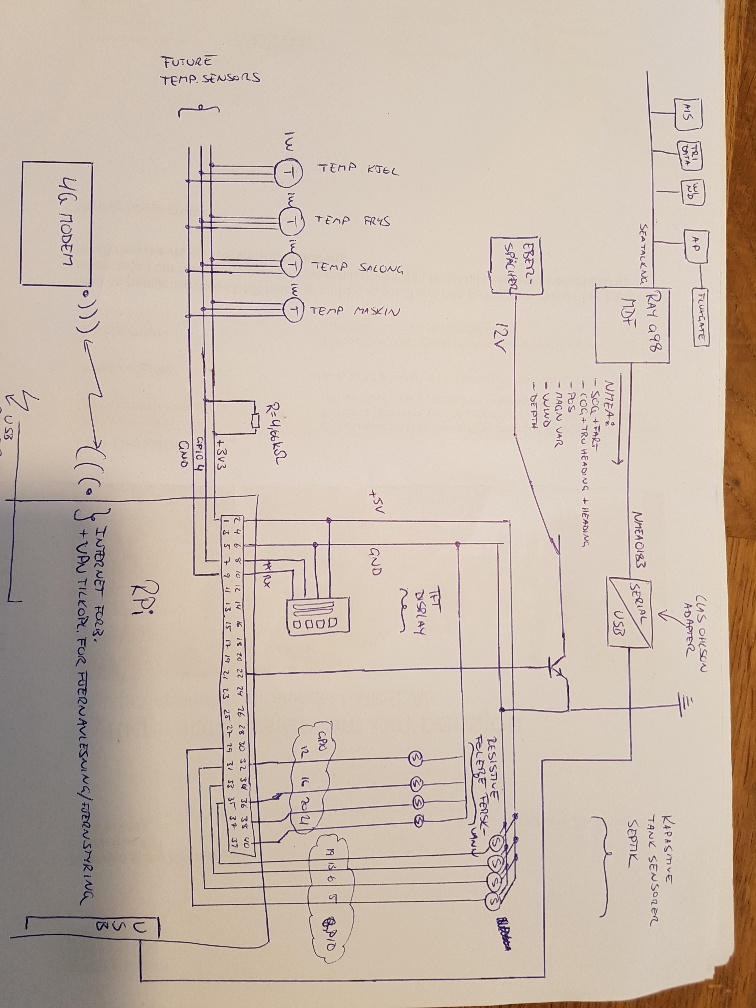 FUTURE
TEMP. SENSORS
1W
T
TEMP KJEL
1W
T
TEMP FRYS
1W
T
TEMP SALONG
1W
T
TEMP MASKIN
4G MODEM
R=4,66kΩ
+3V3
GPIO 4
GND
USB
INTERNET FORB.
+ VPN TILKOPL. FOR FJERNAVLESNING/FJERNSTYRING
RPi
AIS
TRI
DATA
WD
AP
FLUXGATE
SEATALKNG
RAY a98
MDF
NMEA:
- SOG + FART
- COG + TRU HEADING + HEADING
- POS
- MAGN VAR
- WIND
- DEPTH
NMEA0183
SERIAL
USB
CLAS OHLSON
ADAPTER
EBER-
SPÄCHER
12V
+5V
GND
TFT
DISPLAY
RX
2 4 6 8 10 12 14 16 18 20 22 24 26 28 30 32 34 36 38 40
1 3 5 7 9 11 13 15 17 19 21 23 25 27 29 31 33 35 37
GPIO
12
16
20
21
S
S
S
S
RESISTIVE
FERSK-
VANN
S
S
S
S
19
13
6
5
GPIO
KAPASITIVE
TANK SENSORER
SEPTIK
USB